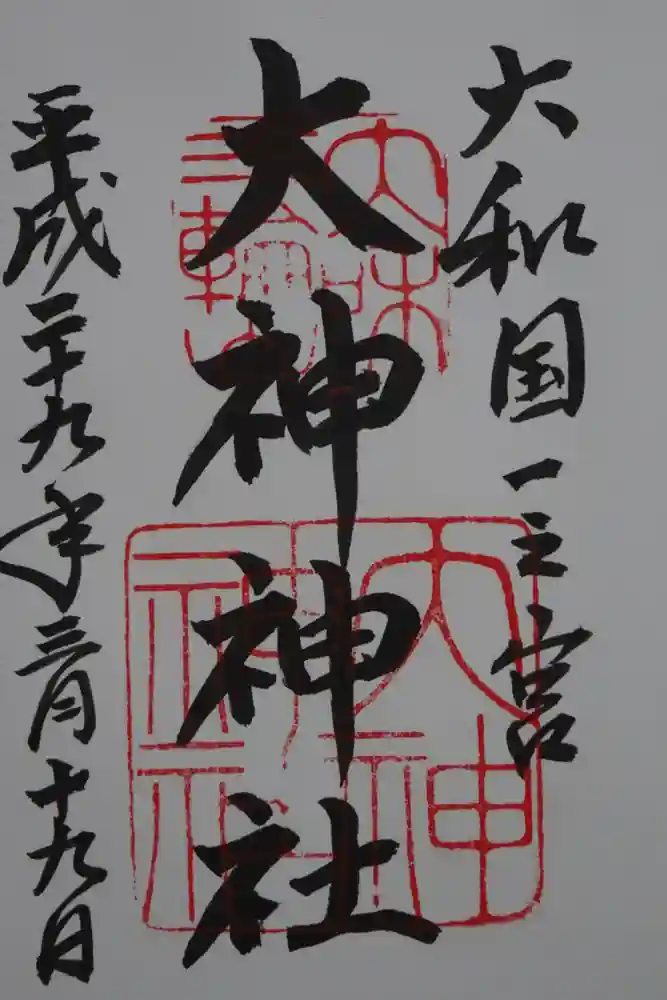 大和国一之宮
大神神社
平成二十九年三月十九日
大神
神社